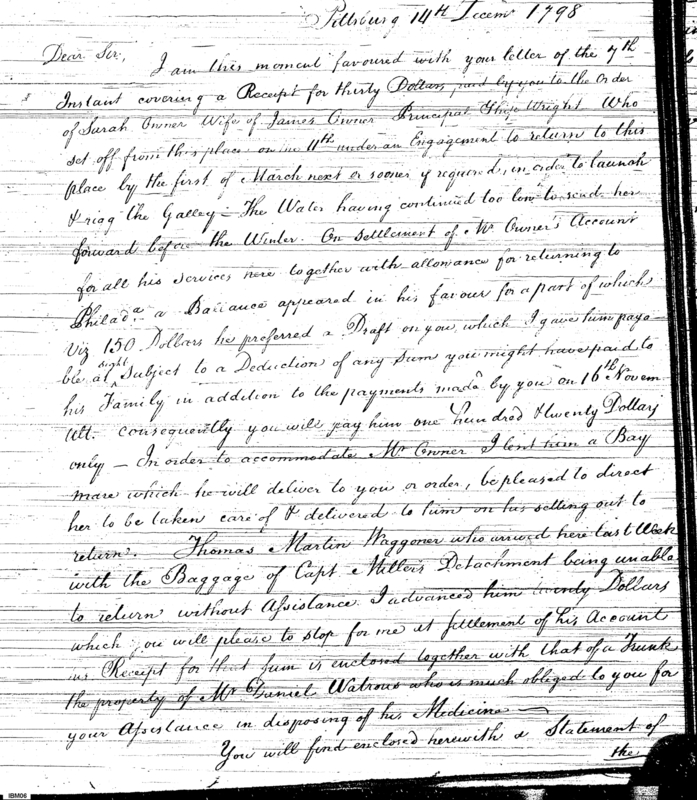 Pittsburg 14th Decemr 1798
Dear Sir, I am this moment favoured with your letter of the 7th
Instant covering a Receipt for thirty Dollars paid by you to the Order
of Sarah Owner Wife of James Owner Principal Ship Wright Who
set off from this place on the 11th under an Engagement to return to this
place by the first of March next or sooner if required, in order to launch
& riag the Galley – The Water having continued too low to send her
forward before the Winter. On Settlement of Mr Owner's Account
for all his services here together with allowance for returning to
Philada a Ballance appeared in his favour for a part of which
Viz 150 Dollars he preferred a Draft on you, which I gave him paya-
ble at sight Subject to a Deduction of any sum you might have paid to
his Family in addition to the payments made by you on 16th Novem
Ult. consequently you will pay him one hundred & twenty Dollars
only – In order to accommodate Mr Owner I lent him a Bay
mare which he will deliver to you or order, be pleased to direct
her to be taken care of & delivered to him on his setting out to
return. Thomas Martin Waggoner who arrived here last Week
with the Baggage of Capt Millers Detachment being unable
to return without Assistance I advanced him twenty Dollars
which you will please to stop for me at Settlement of his Account
his Receipt for that sum is enclosed together with that of a Trunk
the property of Mr Daniel Watrous who is much obliged to you for
your Assistance in disposing of his Medicine –
You will find enclosed herewith a Statement of
the
IBM06